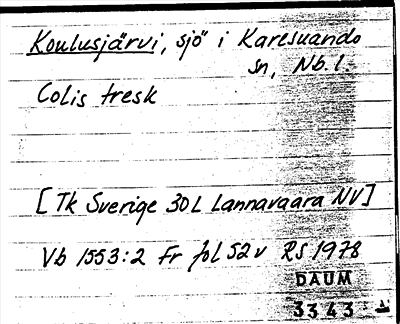 Koulusjärvi, sjö i Karesuando
sn, Nb l.
Colis tresk
[Tk Sverige 30L Lannavaara NV]
Vb 1553:2 Fr fol 52v RS 1978
DAUM
3343